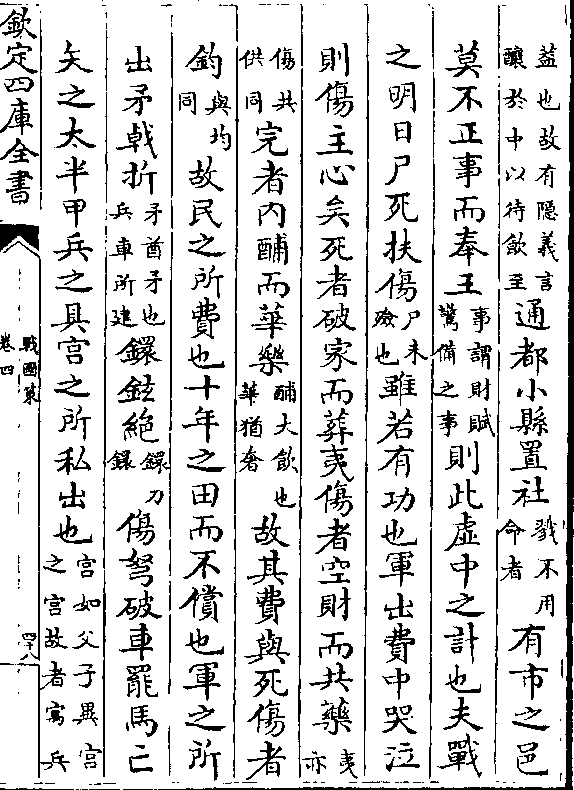 葢也故有隱義言釀於中以待飲至通都小縣置社戮不用命者有市之邑
莫不正事而奉王事謂財賦警備之事則此虛中之計也夫戰
之明日尸死扶傷尸未殮也雖若有功也軍出費中哭泣
則傷主心矣死者破家而葬夷傷者空財而共藥夷亦
傷共供同完者内酺而華樂酺大飲也華猶奢故其費與死傷者
鈞與均同故民之所費也十年之田而不償也軍之所
出矛戟折矛酋矛也兵車所建鐶鉉絶鐶刀鐶傷弩破車罷馬亡
矢之太半甲兵之具宫之所私出也宫如父子異宫之宫故者寫兵
欽定四庫全書
戰國策
卷四
四十八